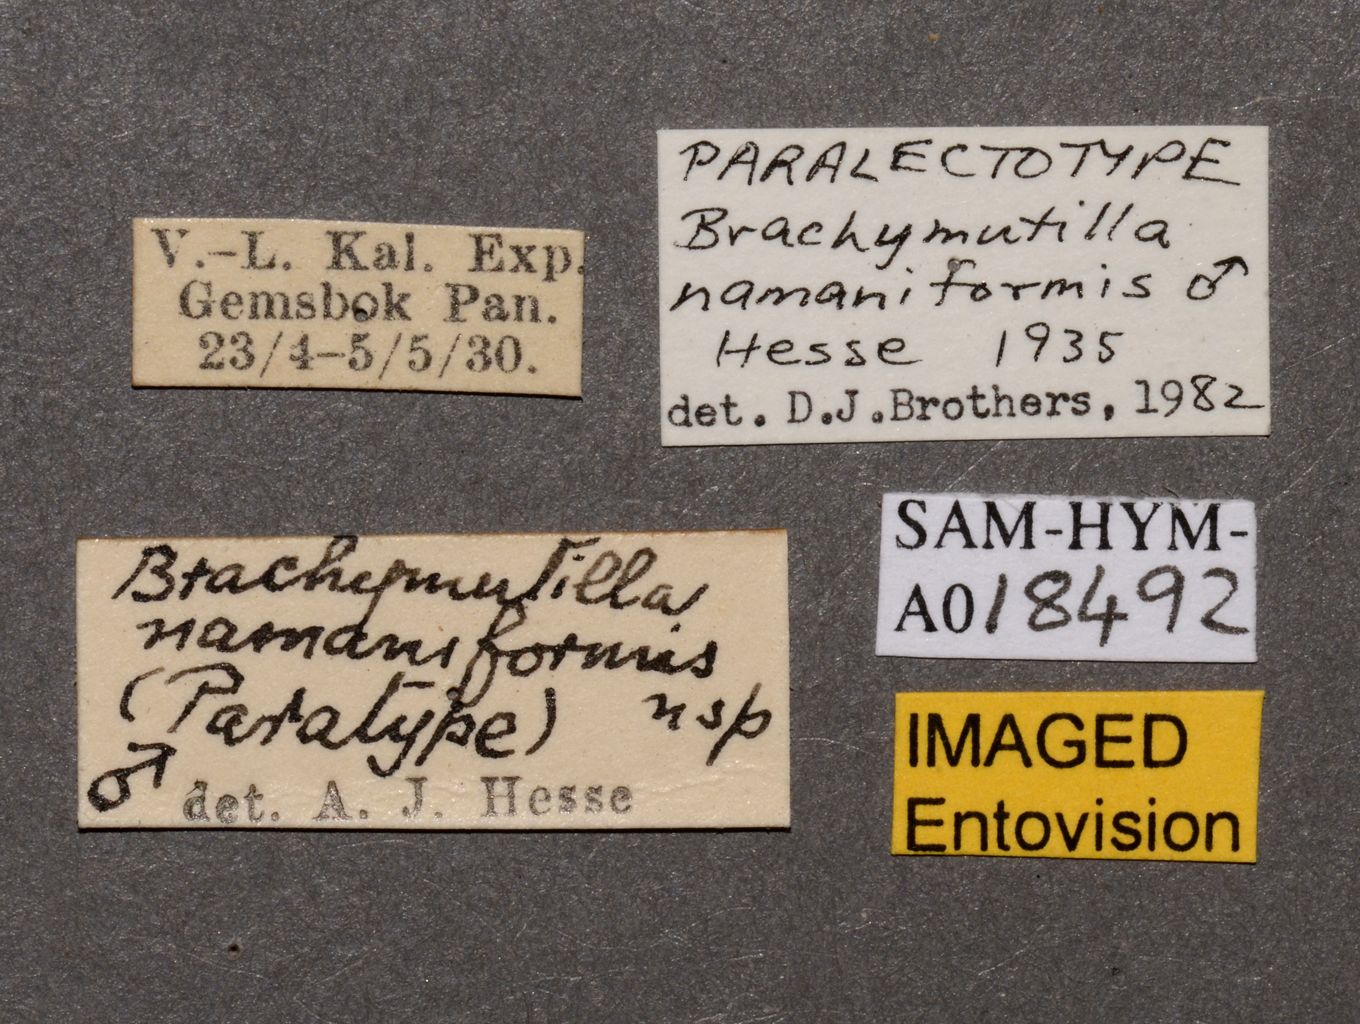 V.-L. Kal. Exp.
Gemsbok Pan.
23/4-5/5/30.
PARALECTOTYPE
Brachymutilla
namaniformis ♂
Hesse 1935
det. D.J.Brothers, 1982
Brachymutilla
namaniformis
(Paratype) nsp
♂ det. A. J. Hesse
SAM-HYM-
A018492
IMAGED
Entovision